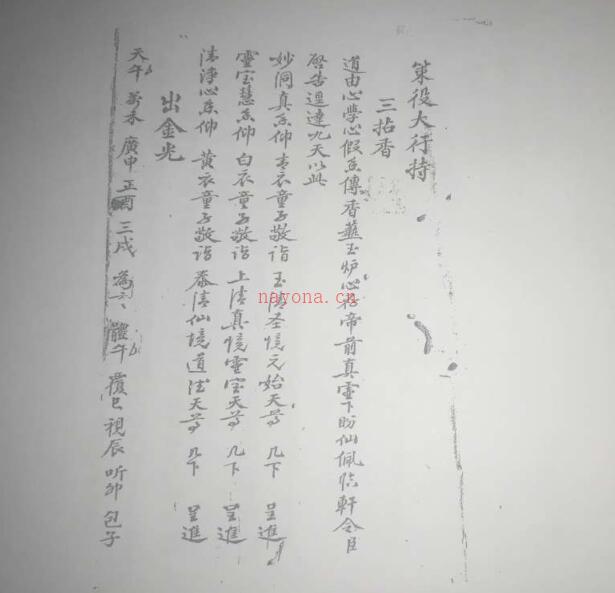 策役大行持
三拈香
道由心學心假香傳香爇玉炉心存帝前真靈下盼仙佩临軒令臣
啓告逕達九天以此
妙洞真香仰 青衣童子敬诣 玉清圣境元始天尊 几下 呈進
靈宝慧香仰 白衣童子敬诣 上清真境靈宝天尊 几下 呈進
清净心香仰 黄衣童子敬诣 泰清仙境道德天尊 几下 呈進
出金光
天午 萬未 廣申 正酉 三戌 為 體午 覆巳 視辰 听卯 包子
nayona.cn